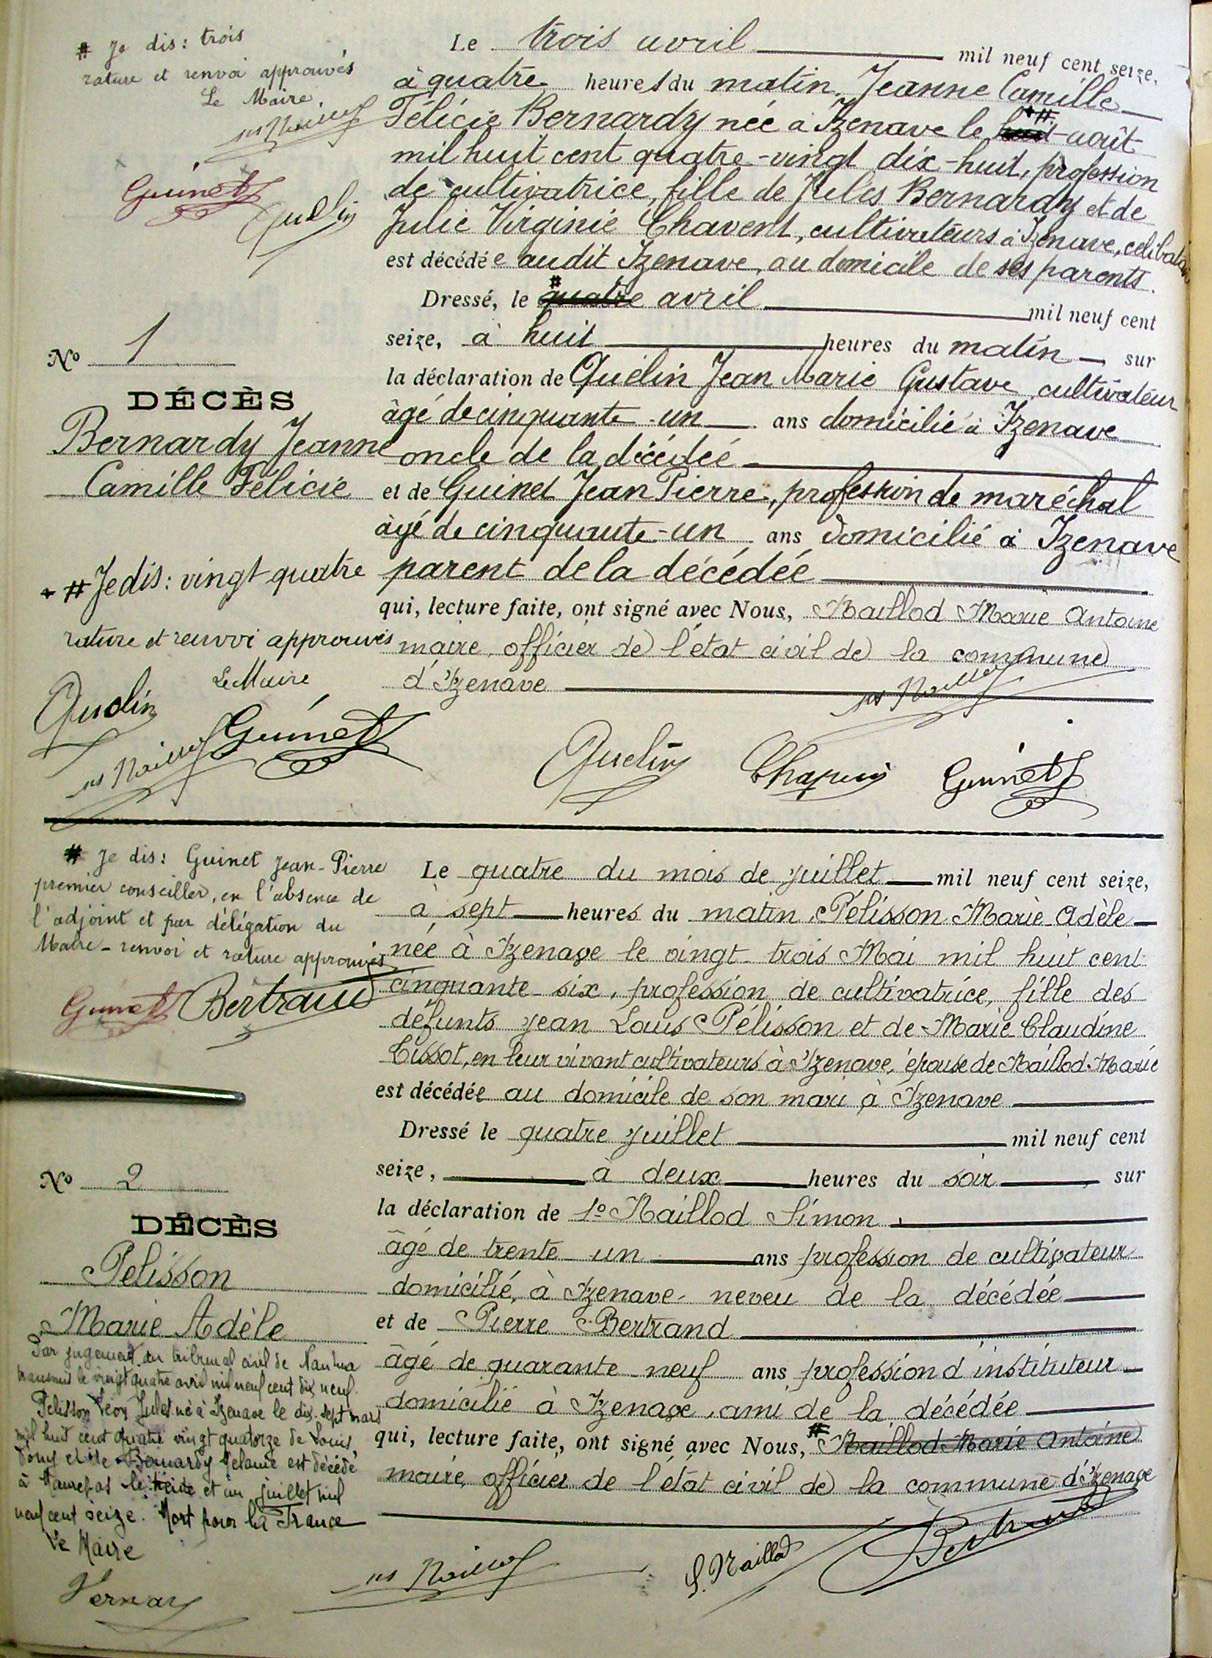 # Je dis : trois
rature et renvoi approuvés
Le Maire
Guinet
Quelin
Le trois avril mil neuf cent seize,
à quatre heures du matin, Jeanne Camille
Félicie Bernardy née à Izenave le huit # août
mil huit cent quatre-vingt dix-huit, profession
de cultivatrice, fille de Jules Bernardy et de
Julie Virginie Chavent, cultivateurs à Izenave, célibataire
est décédée audit Izenave, au domicile de ses parents.
Dressé, le # quatre avril mil neuf cent
seize, à huit heures du matin sur
la déclaration de Quelin Jean Marie Gustave, cultivateur
âgé de cinquante-un ans domicilié à Izenave
oncle de la décédée
et de Guinet Jean Pierre, profession de maréchal
âgé de cinquante-un ans domicilié à Izenave
parent de la décédée
qui, lecture faite, ont signé avec Nous, Maillod Marie Antoine
maire, officier de l'état civil de la commune
d'Izenave
Quelin Chapuis Guinet
No 1
DÉCÈS
Bernardy Jeanne
Camille Félicie
# Je dis : vingt quatre
rature et renvoi approuvés
Le Maire
Quelin
Guinet
# Je dis : Guinet Jean-Pierre
premier conseiller, en l'absence de
l'adjoint et par délégation du
Maire - renvoi et rature approuvés
Guinet Bertrand
Le quatre du mois de juillet mil neuf cent seize,
à sept heures du matin, Pélisson Marie Adèle
née à Izenave le vingt-trois Mai mil huit cent
cinquante-six, profession de cultivatrice, fille des
défunts Jean Louis Pélisson et de Marie Claudine
Tissot, en leur vivant cultivateurs à Izenave, épouse de Maillod Marie
est décédée au domicile de son mari à Izenave
Dressé le quatre juillet mil neuf cent
seize, à deux heures du soir sur
la déclaration de 1º Maillod Simon,
âgé de trente-un ans profession de cultivateur
domicilié, à Izenave - neveu de la décédée
et de Pierre Bertrand
âgé de quarante neuf ans profession d'instituteur
domicilié à Izenave, ami de la décédée
qui, lecture faite, ont signé avec Nous, # Maillod Marie Antoine
maire, officier de l'état civil de la commune d'Izenave
S. Maillod Bertrand
No 2
DÉCÈS
Pélisson
Marie Adèle
Par jugement du tribunal civil de Nantua
transmis le vingt quatre avril mil neuf cent dix neuf.
Pelisson Léon Jules né à Izenave le dix-sept mars
mil huit cent quatre vingt quatorze de Louis
et de Bernardy Mélanie est décédé
à Maurepas le trente et un juillet mil
neuf cent seize. Mort pour la France
Le Maire